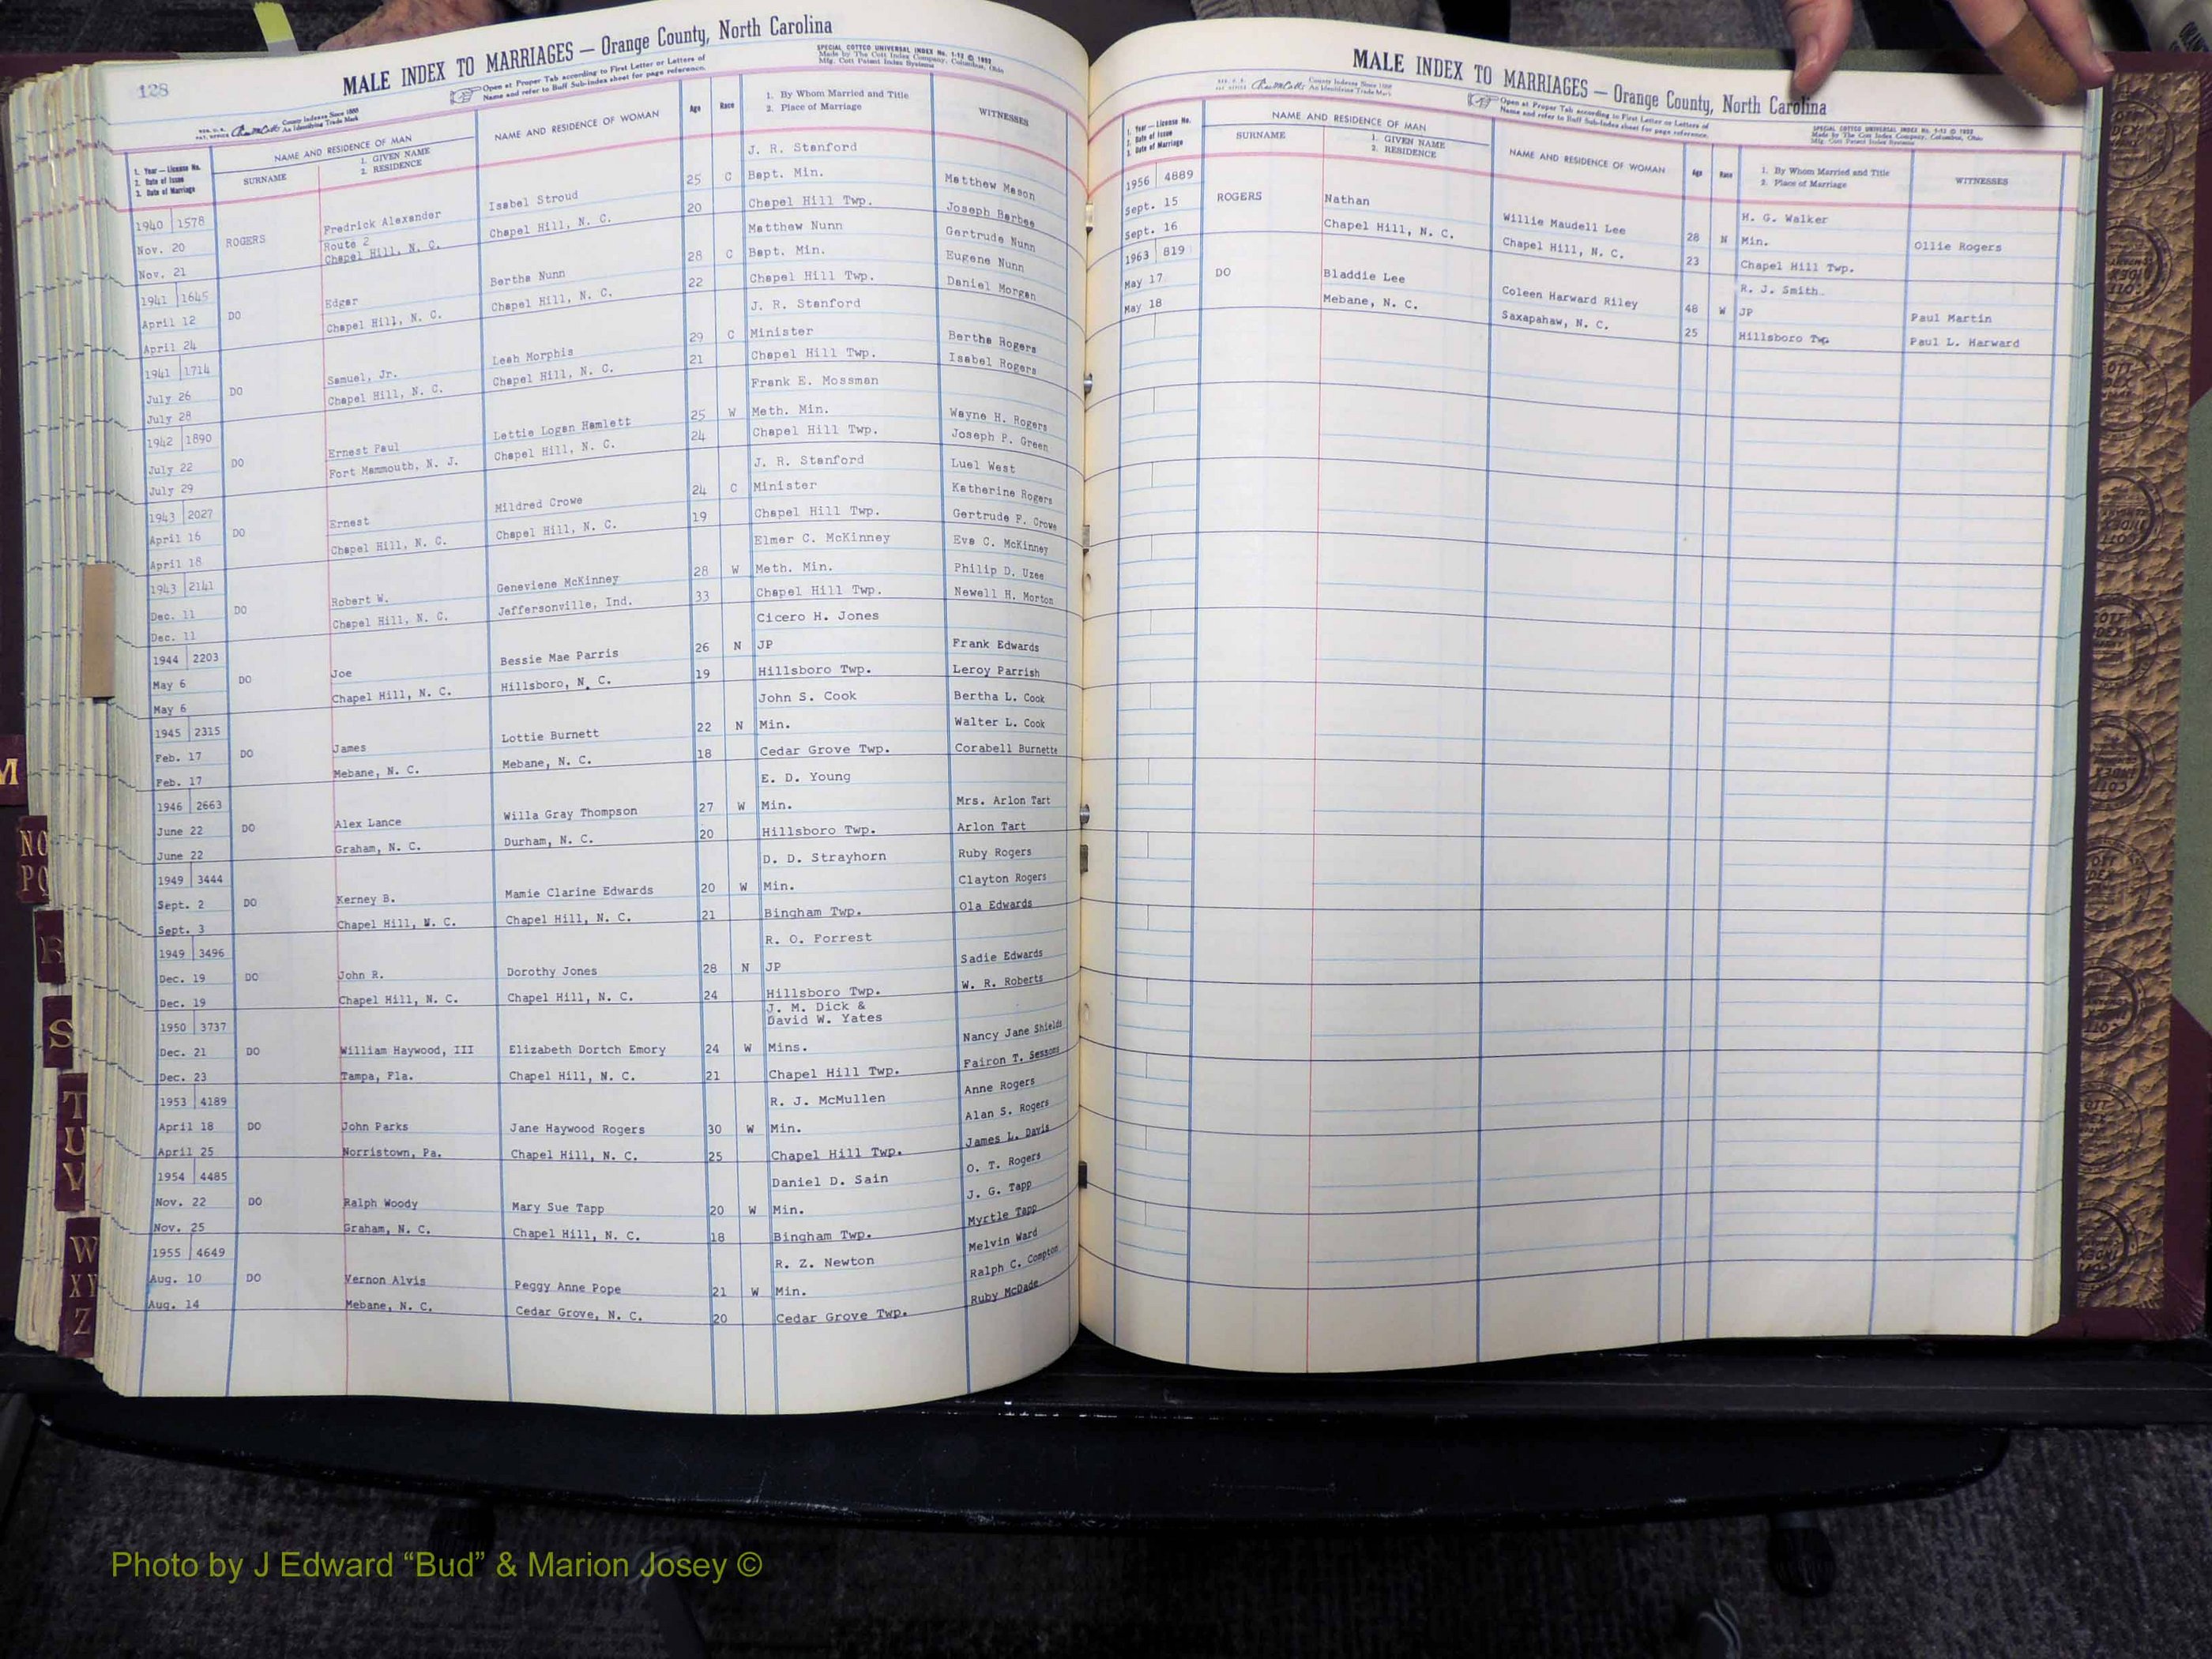 128
MALE INDEX TO MARRIAGES — Orange County, North Carolina
Open at Proper Tab according to First Letter or Letters of
Name and refer to Buff Sub-Index sheet for page reference.
SPECIAL COTTCO UNIVERSAL INDEX No. 1-12 © 1952
Made by The Cott Index Company, Columbus, Ohio
Mfg. Cott Patent Index Systems
County Indexes Since 1888
An Identifying Trade Mark
1. Year — License No.
2. Date of Issue
3. Date of Marriage
NAME AND RESIDENCE OF MAN
SURNAME
1. GIVEN NAME
2. RESIDENCE
NAME AND RESIDENCE OF WOMAN
Age
Race
1. By Whom Married and Title
2. Place of Marriage
WITNESSES
J. R. Stanford
1940 1578 Fredrick Alexander Isabel Stroud 25 C Bapt. Min. Matthew Mason
Nov. 20 ROGERS Route 2 Chapel Hill, N. C. 20 Chapel Hill Twp. Joseph Barbee
Nov. 21 Chapel Hill, N. C. Matthew Nunn Gertrude Nunn
1941 1645 Edgar Bertha Nunn 28 C Bapt. Min. Eugene Nunn
April 12 DO Chapel Hill, N. C. Chapel Hill, N. C. 22 Chapel Hill Twp. Daniel Morgan
April 24 J. R. Stanford
1941 1714 Samuel, Jr. Leah Morphis 29 C Minister Bertha Rogers
July 26 DO Chapel Hill, N. C. Chapel Hill, N. C. 21 Chapel Hill Twp. Isabel Rogers
July 28 Frank E. Mossman
1942 1890 Ernest Paul Lettie Logan Hamlett 25 W Meth. Min. Wayne H. Rogers
July 22 DO Fort Mammouth, N. J. Chapel Hill, N. C. 24 Chapel Hill Twp. Joseph P. Green
July 29 J. R. Stanford Luel West
1943 2027 Ernest Mildred Crowe 24 C Minister Katherine Rogers
April 16 DO Chapel Hill, N. C. Chapel Hill, N. C. 19 Chapel Hill Twp. Gertrude F. Crowe
April 18 Elmer C. McKinney Eva C. McKinney
1943 2141 Robert W. Geneviene McKinney 28 W Meth. Min. Philip D. Uzee
Dec. 11 DO Chapel Hill, N. C. Jeffersonville, Ind. 33 Chapel Hill Twp. Newell H. Morton
Dec. 11 Cicero H. Jones
1944 2203 Joe Bessie Mae Parris 26 N JP Frank Edwards
May 6 DO Chapel Hill, N. C. Hillsboro, N. C. 19 Hillsboro Twp. Leroy Parrish
May 6 John S. Cook Bertha L. Cook
1945 2315 James Lottie Burnett 22 N Min. Walter L. Cook
Feb. 17 DO Mebane, N. C. Mebane, N. C. 18 Cedar Grove Twp. Corabell Burnette
Feb. 17 E. D. Young
1946 2663 Alex Lance Willa Gray Thompson 27 W Min. Mrs. Arlon Tart
June 22 DO Graham, N. C. Durham, N. C. 20 Hillsboro Twp. Arlon Tart
June 22 D. D. Strayhorn Ruby Rogers
1949 3444 Kerney B. Mamie Clarine Edwards 20 W Min. Clayton Rogers
Sept. 2 DO Chapel Hill, N. C. Chapel Hill, N. C. 21 Bingham Twp. Ola Edwards
Sept. 3 R. O. Forrest
1949 3496 John R. Dorothy Jones 28 N JP Sadie Edwards
Dec. 19 DO Chapel Hill, N. C. Chapel Hill, N. C. 24 Hillsboro Twp. W. R. Roberts
Dec. 19 J. M. Dick &
David W. Yates
1950 3737 Nancy Jane Shields
Dec. 21 DO William Haywood, III Elizabeth Dortch Emory 24 W Mins. Fairon T. Sessoms
Dec. 23 Tampa, Fla. Chapel Hill, N. C. 21 Chapel Hill Twp. Anne Rogers
1953 4189 R. J. McMullen Alan S. Rogers
April 18 DO John Parks Jane Haywood Rogers 30 W Min. James L. Davis
April 25 Norristown, Pa. Chapel Hill, N. C. 25 Chapel Hill Twp.
1954 4485 Daniel D. Sain O. T. Rogers
Nov. 22 DO Ralph Woody Mary Sue Tapp 20 W Min. J. G. Tapp
Nov. 25 Graham, N. C. Chapel Hill, N. C. 18 Bingham Twp. Myrtle Tapp
1955 4649 R. Z. Newton Melvin Ward
Aug. 10 DO Vernon Alvis Peggy Anne Pope 21 W Min. Ralph C. Compton
Aug. 14 Mebane, N. C. Cedar Grove, N. C. 20 Cedar Grove Twp. Ruby McDade
MALE INDEX TO MARRIAGES — Orange County, North Carolina
Open at Proper Tab according to First Letter or Letters of
Name and refer to Buff Sub-Index sheet for page reference.
SPECIAL COTTCO UNIVERSAL INDEX No. 1-12 © 1952
Made by The Cott Index Company, Columbus, Ohio
Mfg. Cott Patent Index Systems
County Indexes Since 1888
An Identifying Trade Mark
1. Year — License No.
2. Date of Issue
3. Date of Marriage
NAME AND RESIDENCE OF MAN
SURNAME
1. GIVEN NAME
2. RESIDENCE
NAME AND RESIDENCE OF WOMAN
Age
Race
1. By Whom Married and Title
2. Place of Marriage
WITNESSES
1956 4889 H. G. Walker
Sept. 15 ROGERS Nathan Willie Maudell Lee 28 N Min. Ollie Rogers
Sept. 16 Chapel Hill, N. C. Chapel Hill, N. C. 23 Chapel Hill Twp.
1963 819 R. J. Smith
May 17 DO Bladdie Lee Coleen Harward Riley 48 W JP Paul Martin
May 18 Mebane, N. C. Saxapahaw, N. C. 25 Hillsboro Twp Paul L. Harward
M
NO
PQ
R
S
T
U
V
W
XY
Z
Photo by J Edward “Bud” & Marion Josey ©